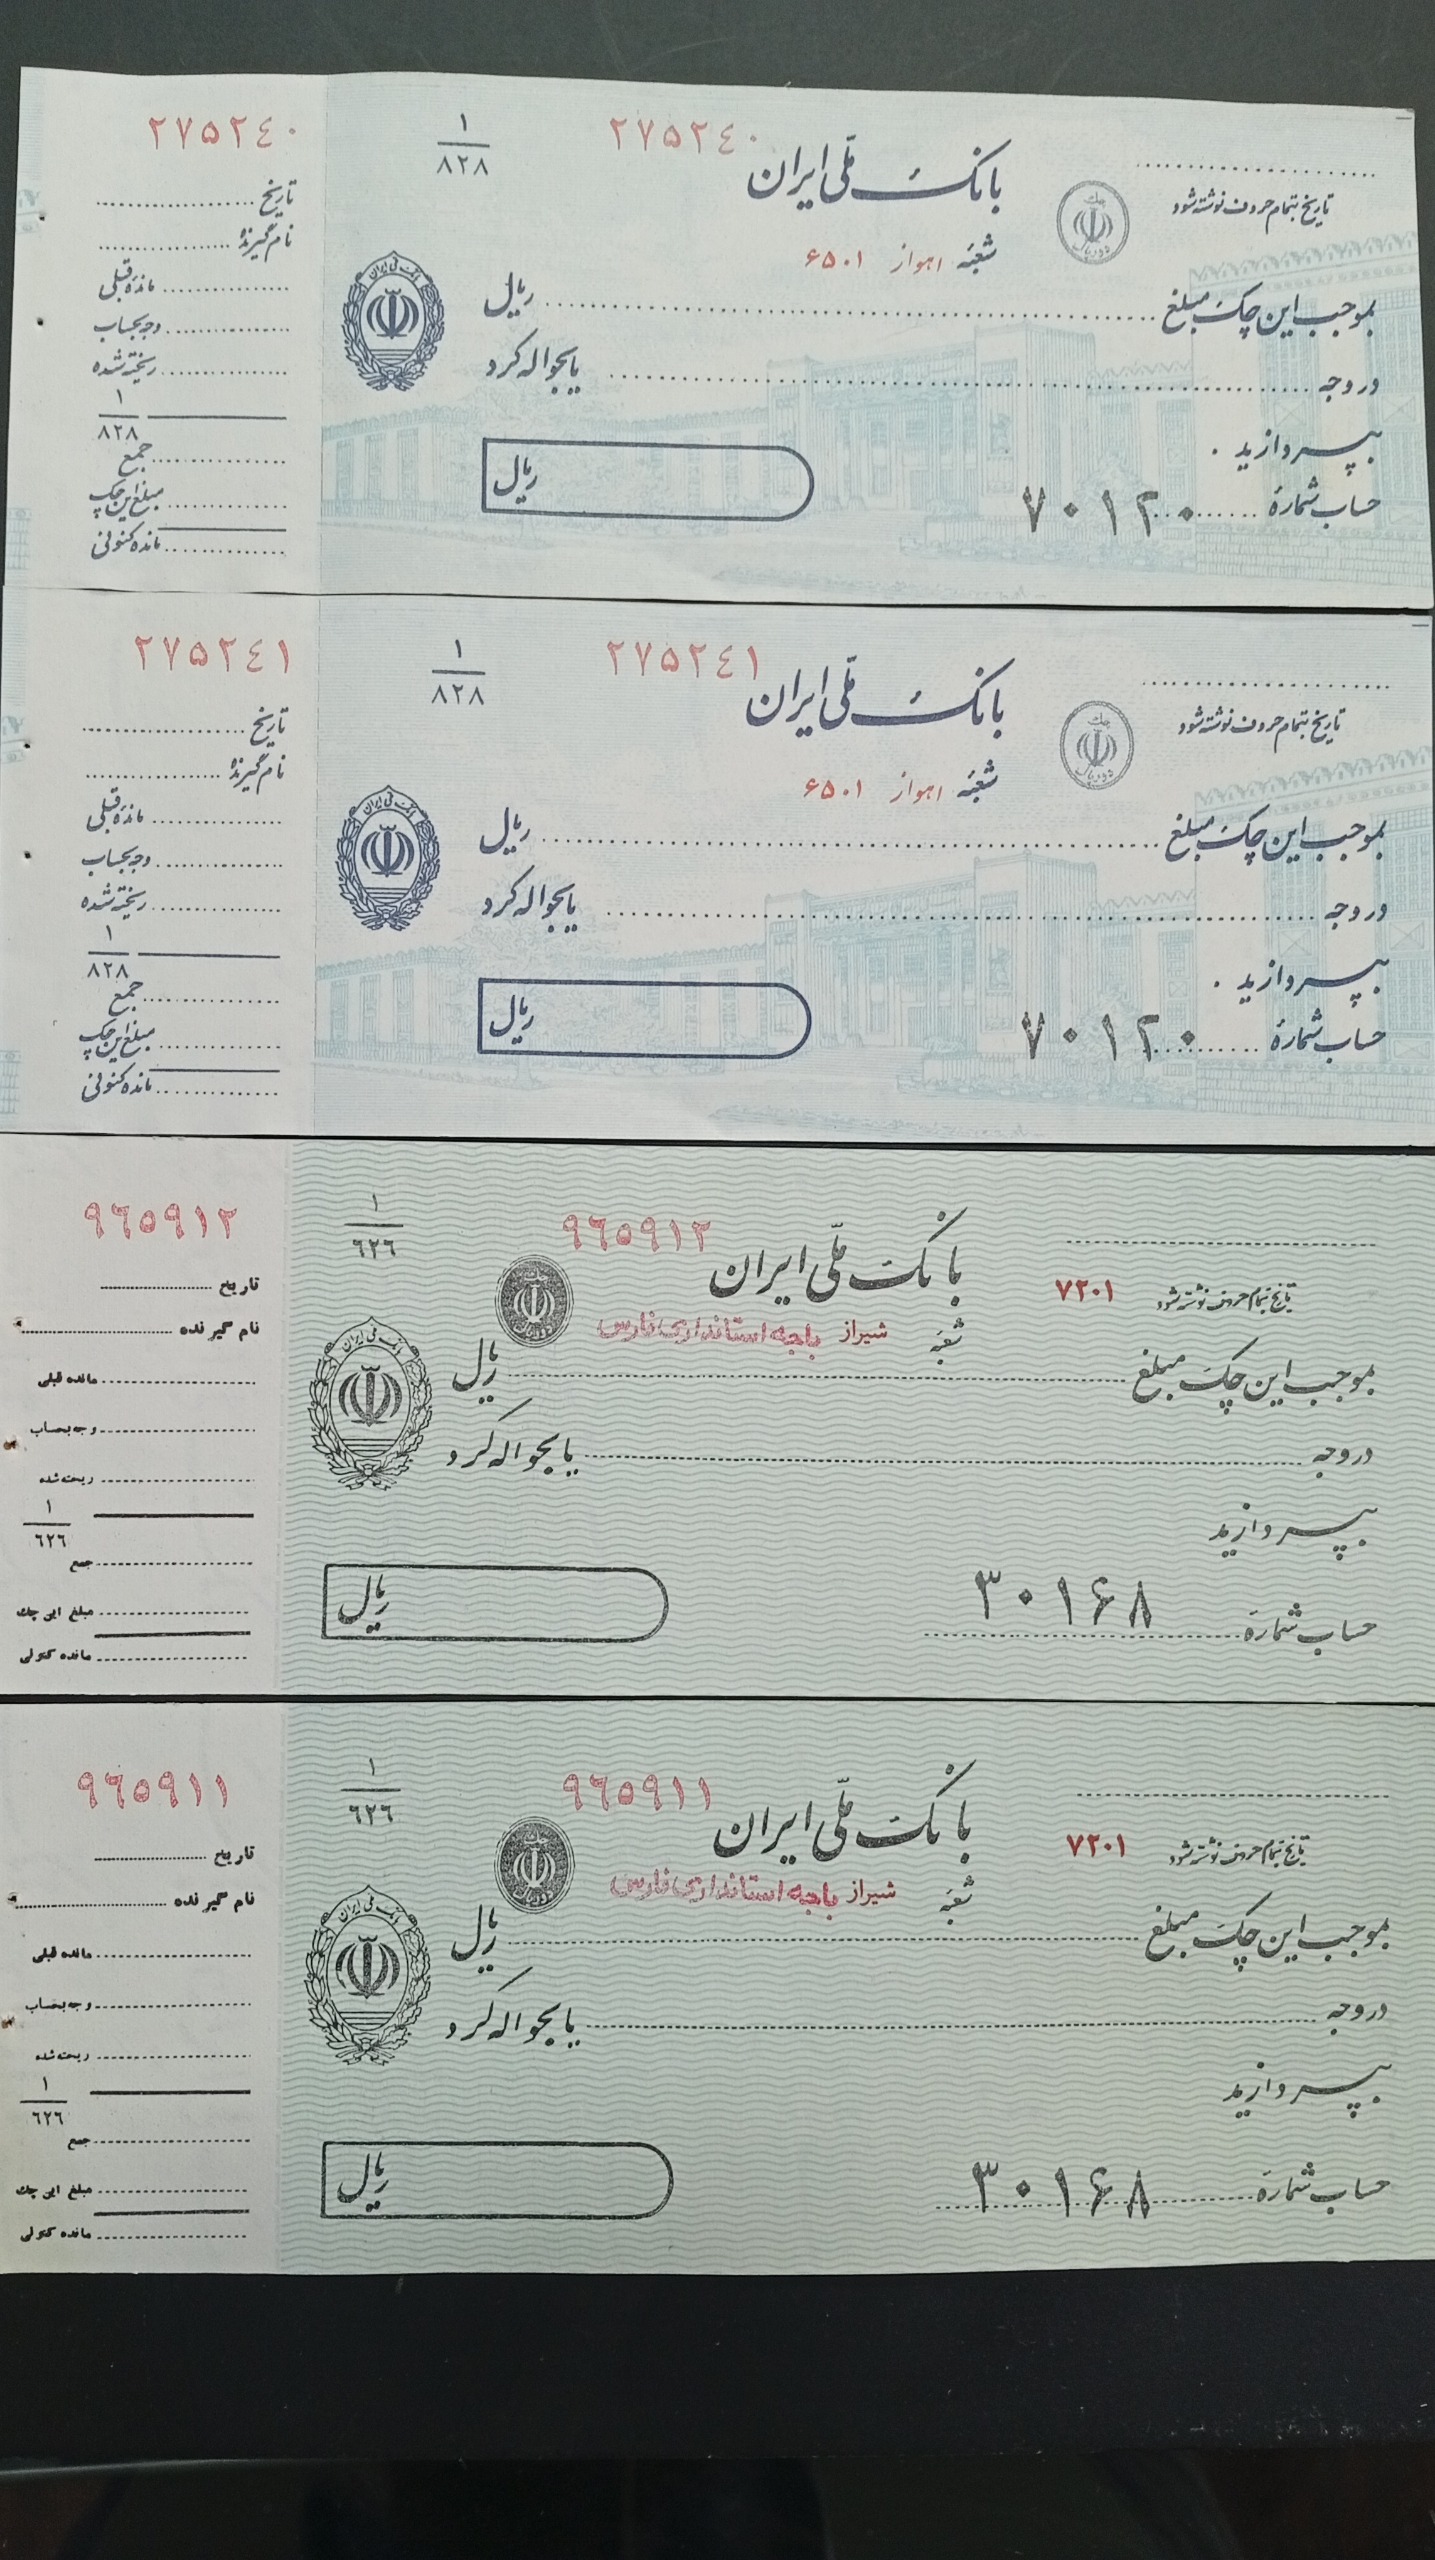 ۲۷۵۲٤۰
۱
۸۲۸
۲۷۵۲٤۰
بانک ملّی ایران
تاریخ بتمام حروف نوشته شود
شعبه اهواز ۶۵۰۱
بموجب این چک مبلغ ریال
در وجه یا بحواله کرد
بپردازید .
حساب شمارهٔ ۷۰۱۲۰
ریال
تاریخ
نام گیرنده
مانده قبلی
وجه بحساب
ریخته شده
۱
۸۲۸
جمع
مبلغ این چک
مانده کنونی
۲۷۵۲٤۱
۱
۸۲۸
۲۷۵۲٤۱
بانک ملّی ایران
تاریخ بتمام حروف نوشته شود
شعبه اهواز ۶۵۰۱
بموجب این چک مبلغ ریال
در وجه یا بحواله کرد
بپردازید .
حساب شمارهٔ ۷۰۱۲۰
ریال
تاریخ
نام گیرنده
مانده قبلی
وجه بحساب
ریخته شده
۱
۸۲۸
جمع
مبلغ این چک
مانده کنونی
۹٦٥۹۱۲
۱
٦۲٦
۹٦٥۹۱۲
بانک ملّی ایران
تاریخ بتمام حروف نوشته شود ۷۲۰۱
شعبه شیراز باجه استانداری فارس
بموجب این چک مبلغ ریال
در وجه یا بحواله کرد
بپردازید
حساب شمارهٔ ۳۰۱۶۸
ریال
تاریخ
نام گیرنده
مانده قبلی
وجه بحساب
ریخته شده
۱
٦۲٦
جمع
مبلغ این چک
مانده کنونی
۹٦٥۹۱۱
۱
٦۲٦
۹٦٥۹۱۱
بانک ملّی ایران
تاریخ بتمام حروف نوشته شود ۷۲۰۱
شعبه شیراز باجه استانداری فارس
بموجب این چک مبلغ ریال
در وجه یا بحواله کرد
بپردازید
حساب شمارهٔ ۳۰۱۶۸
ریال
تاریخ
نام گیرنده
مانده قبلی
وجه بحساب
ریخته شده
۱
٦۲٦
جمع
مبلغ این چک
مانده کنونی